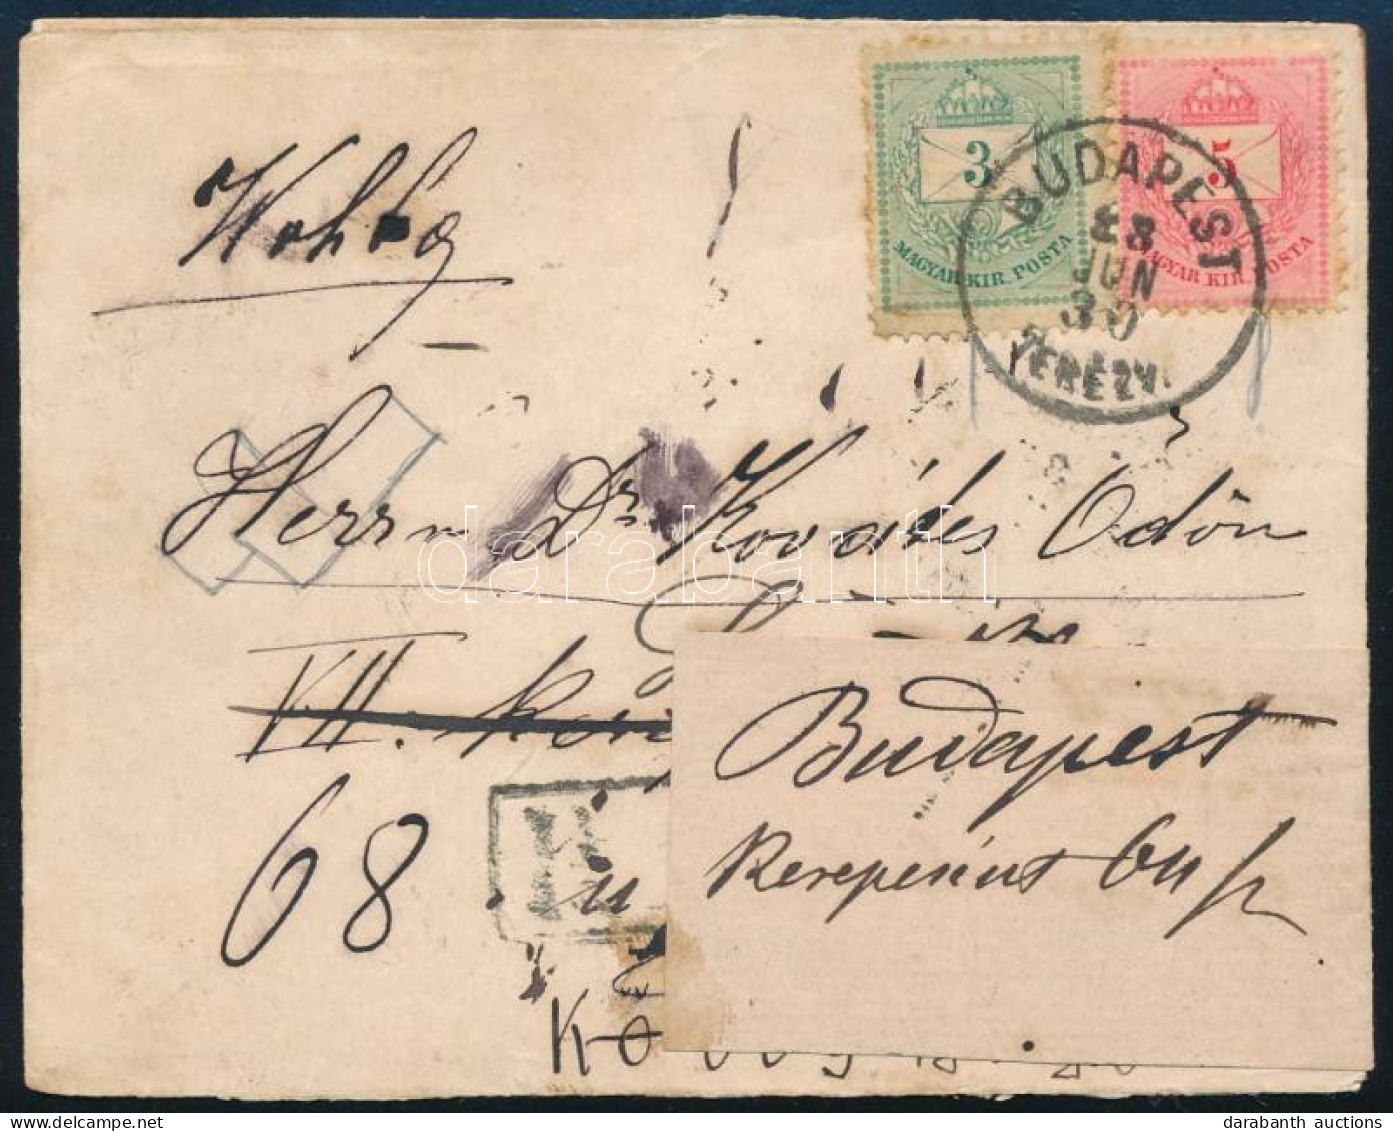 3
MAGYAR KIR. POSTA
5
MAGYAR KIR. POSTA
BUDAPEST
88
JUN
30
TERÉZV.
Herrn Dr. Kovács Ödön
VII.
68
Budapest
Kerepesi út
darabanth
darabanth auctions